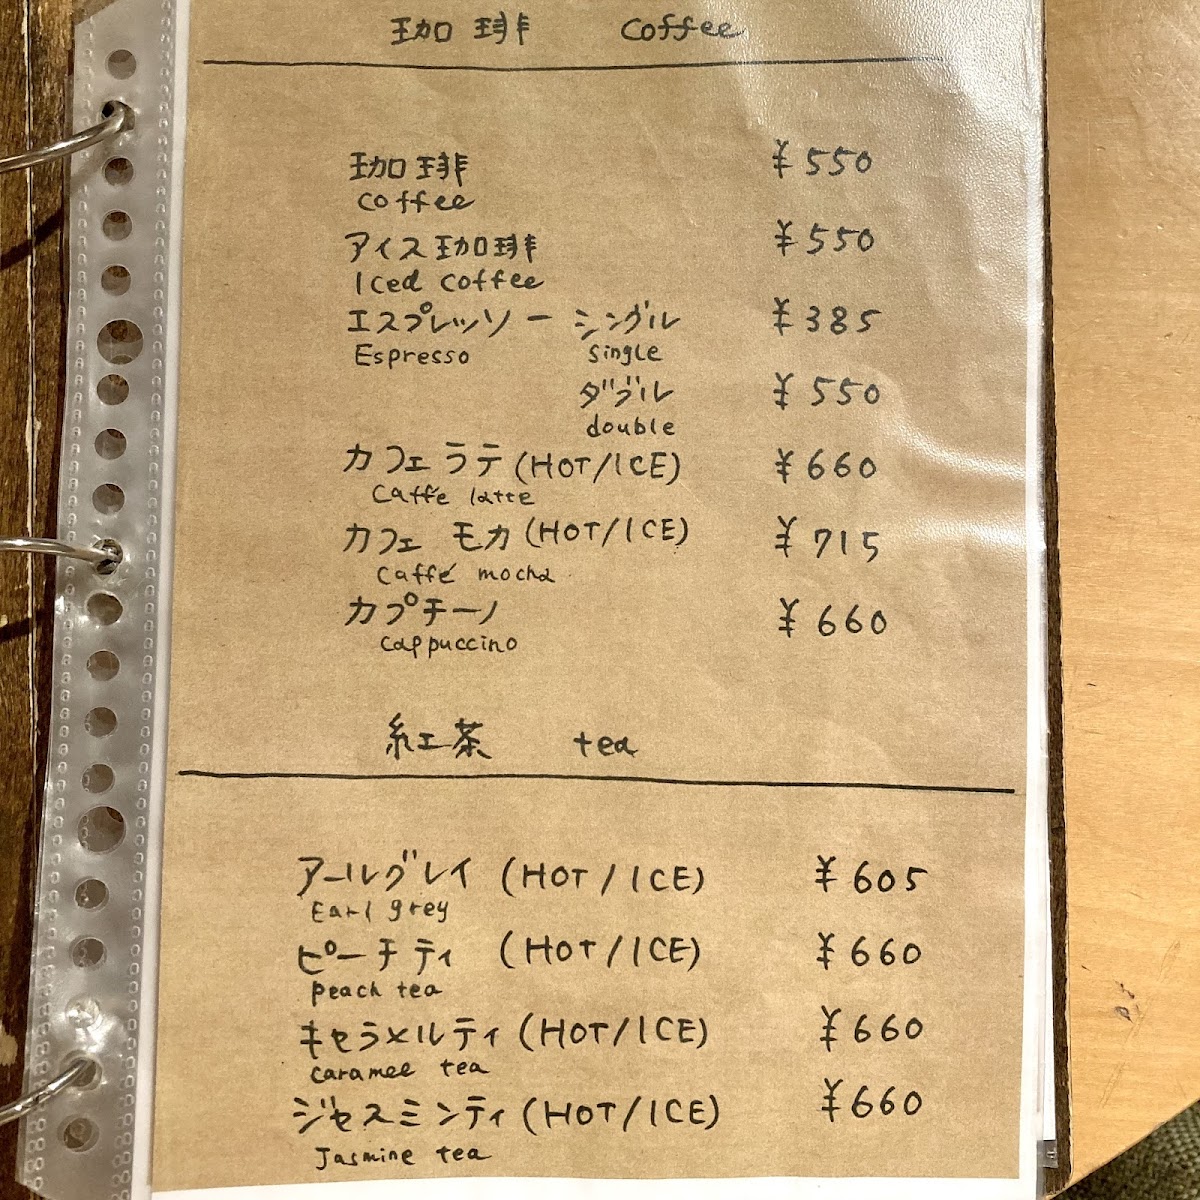 珈琲 coffee
珈琲 ¥550
coffee
アイス珈琲 ¥550
Iced coffee
エスプレッソー シングル ¥385
Espresso single
ダブル ¥550
double
カフェ ラテ (HOT/ICE) ¥660
Caffé latte
カフェ モカ (HOT/ICE) ¥715
Caffé mocha
カプチーノ ¥660
Cappuccino
紅茶 tea
アールグレイ (HOT/ICE) ¥605
Earl grey
ピーチティ (HOT/ICE) ¥660
peach tea
キャラメルティ (HOT/ICE) ¥660
caramel tea
ジャスミンティ (HOT/ICE) ¥660
Jasmine tea